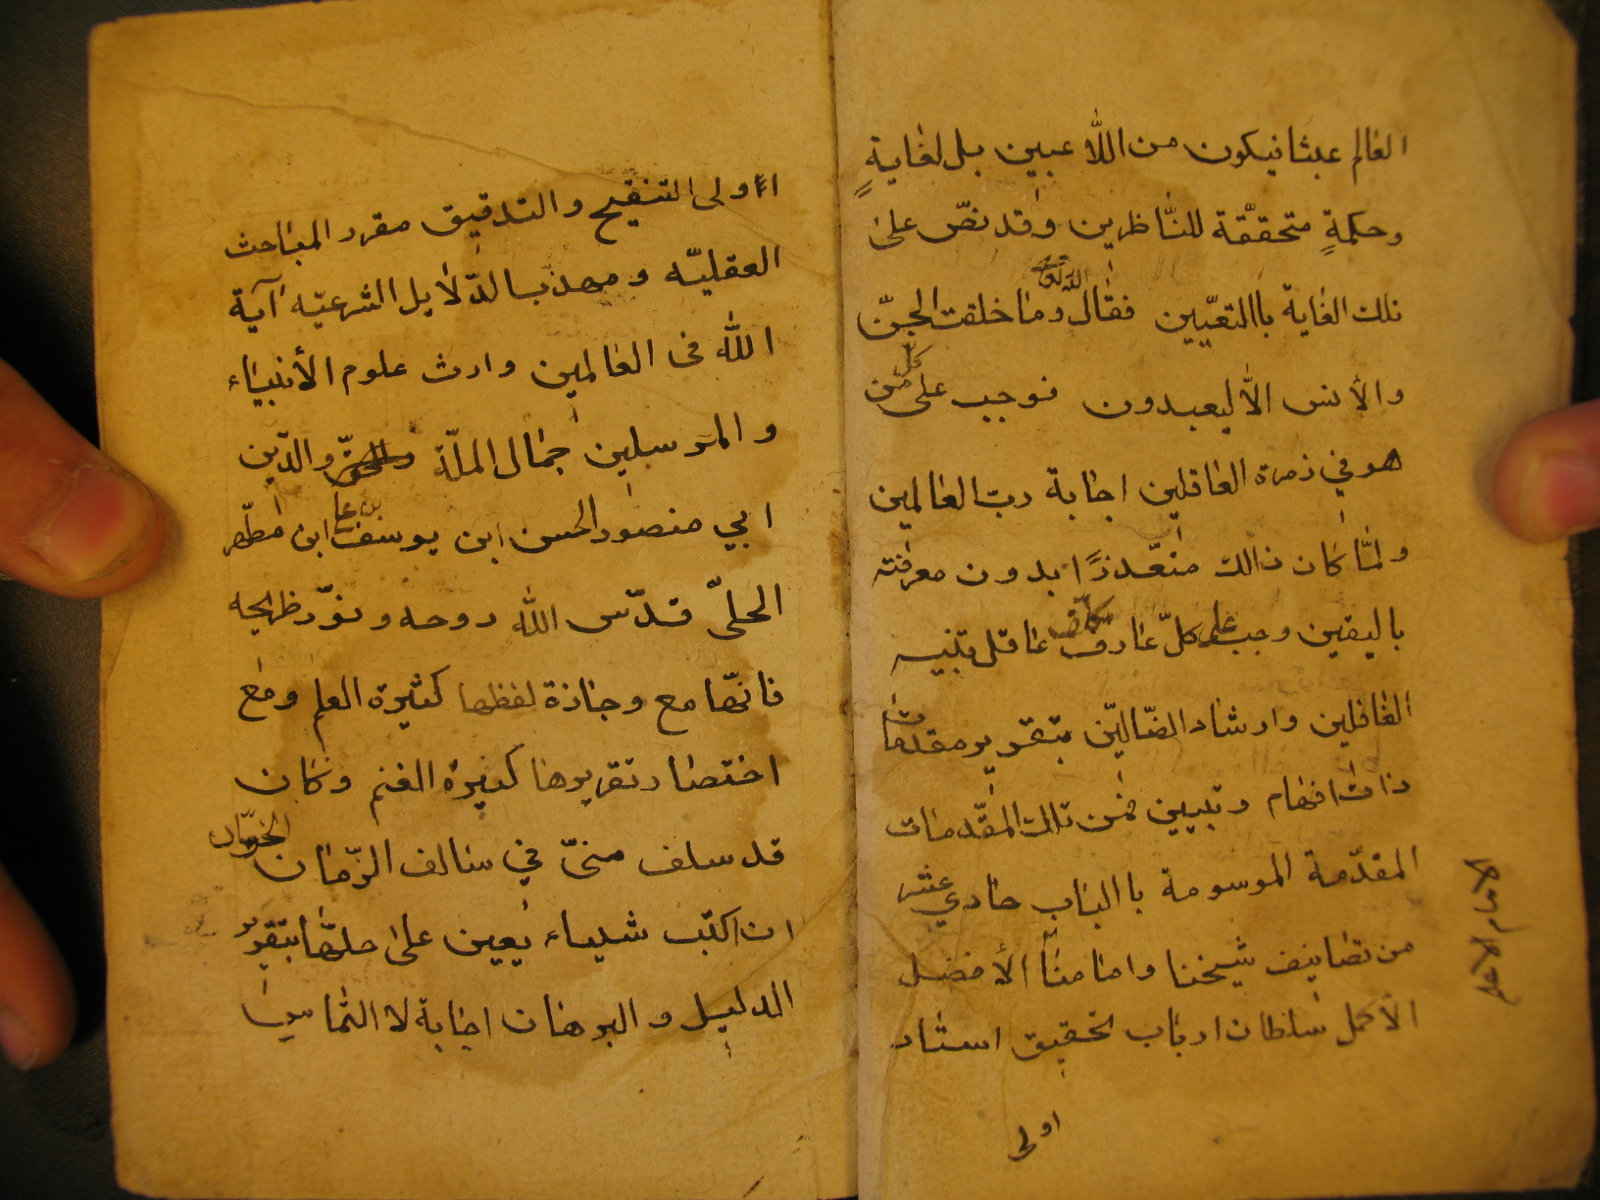 العالم عبثا فيكون من اللّاعبين بل لغايةٍ
وحكمةٍ متحققة للنّاظرين وقد نصّ على
تلك الغاية باالتعيّين فقال الله تعالى وما خلقت الجنّ
والأنس الّا ليعبدون فوجب على كلّ من
هو في زمرة العاقلين اجابة ربّ العالمين
ولمّا كان ذالك متعّذرًا بدون معرفته
باليقين وجب على كلّ عارف مكلّف عاقل تنبيه
الغافلين وارشاد الضّالّين بتقرير مقدمات
ذات افهام وتبيين فمن تلك المقّدمات
المقدّمة الموسومة باالباب حادي عشر
من تصانيف شيخنا وامامنا الأفضل
الأكمل سلطان ارباب تحقيق استاد
اولى
الامام الاعلم
اولى التنقيح والتدقيق مقرر المباحث
العقليّه ومهذّب الدّلايل الشرعيّه آية
الله فى العالمين وارث علوم الأنبياء
والمرسلين جمال الملّة والحقّ والدّين
ابي منصور الحسن ابن يوسف بن على ابن مطّهر
الحلىّ قدّس الله روحه ونوّر ظريحه
فانّها مع وجازة لفظها كثيرة العلم ومع
اختصار تقريرها كبيرة الغنم وكان
قد سلف منىّ في سالف الزّمان الخوّان
ان اكتب شيياء يعين على حلّها بتقرير
الدليل والبرهان اجابة لا التماس